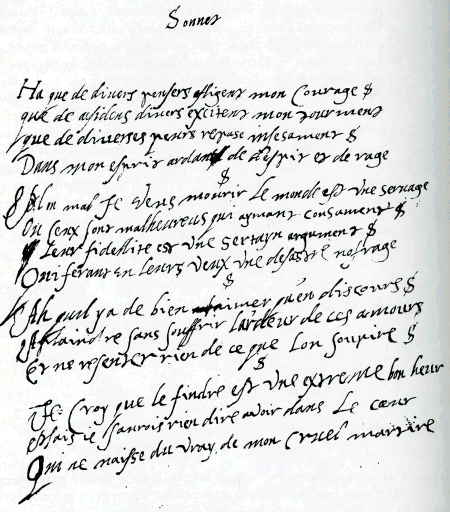 Sonnet
Ha que de divers pensers afligent mon Courage $
que de asidens divers excitent mon tourment
que de diverses peurs repase insesament $
Dans mon esprit ardant de despit et de rage
$
Al un mal Je veus mourir Le monde est une servage
Ou ceux sont malheureus qui aymant constament $
Leur fidellite est une sertayn argument $
en Leurs yeux une desastre nofrage
$
Ah quil ya de bien aimer qu'en discours $
plaindre sans souffrir l'ardeur de ces amours
Et ne resenter rien de ce que Lon soupire $
$
Je Croy que le findre est une extreme bon heur
Mais je saurois rien dire avoir dans Le cœur
Qui ne naisse du vray de mon Cruel martire